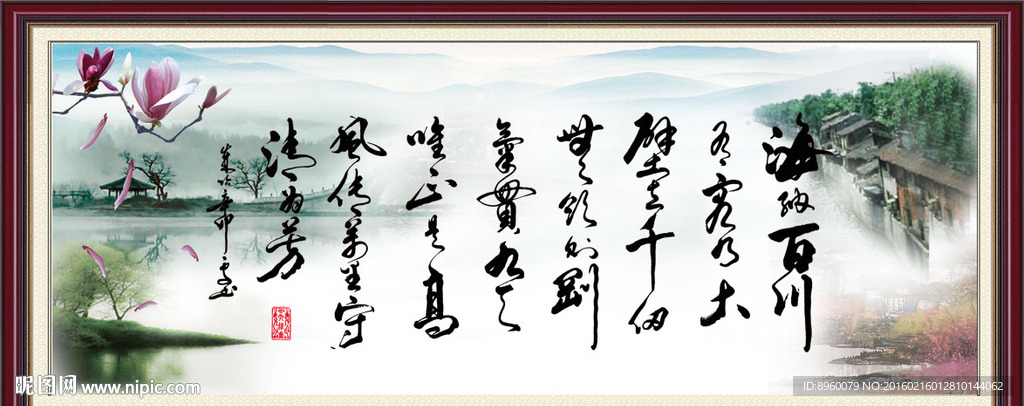 海纳百川
有容乃大
壁立千仞
無欲则剛
氣貫九天
唯正是高
風传萬里守
清为芳
昵图网 www.nipic.com
ID:8960079 NO:20160216012810144062